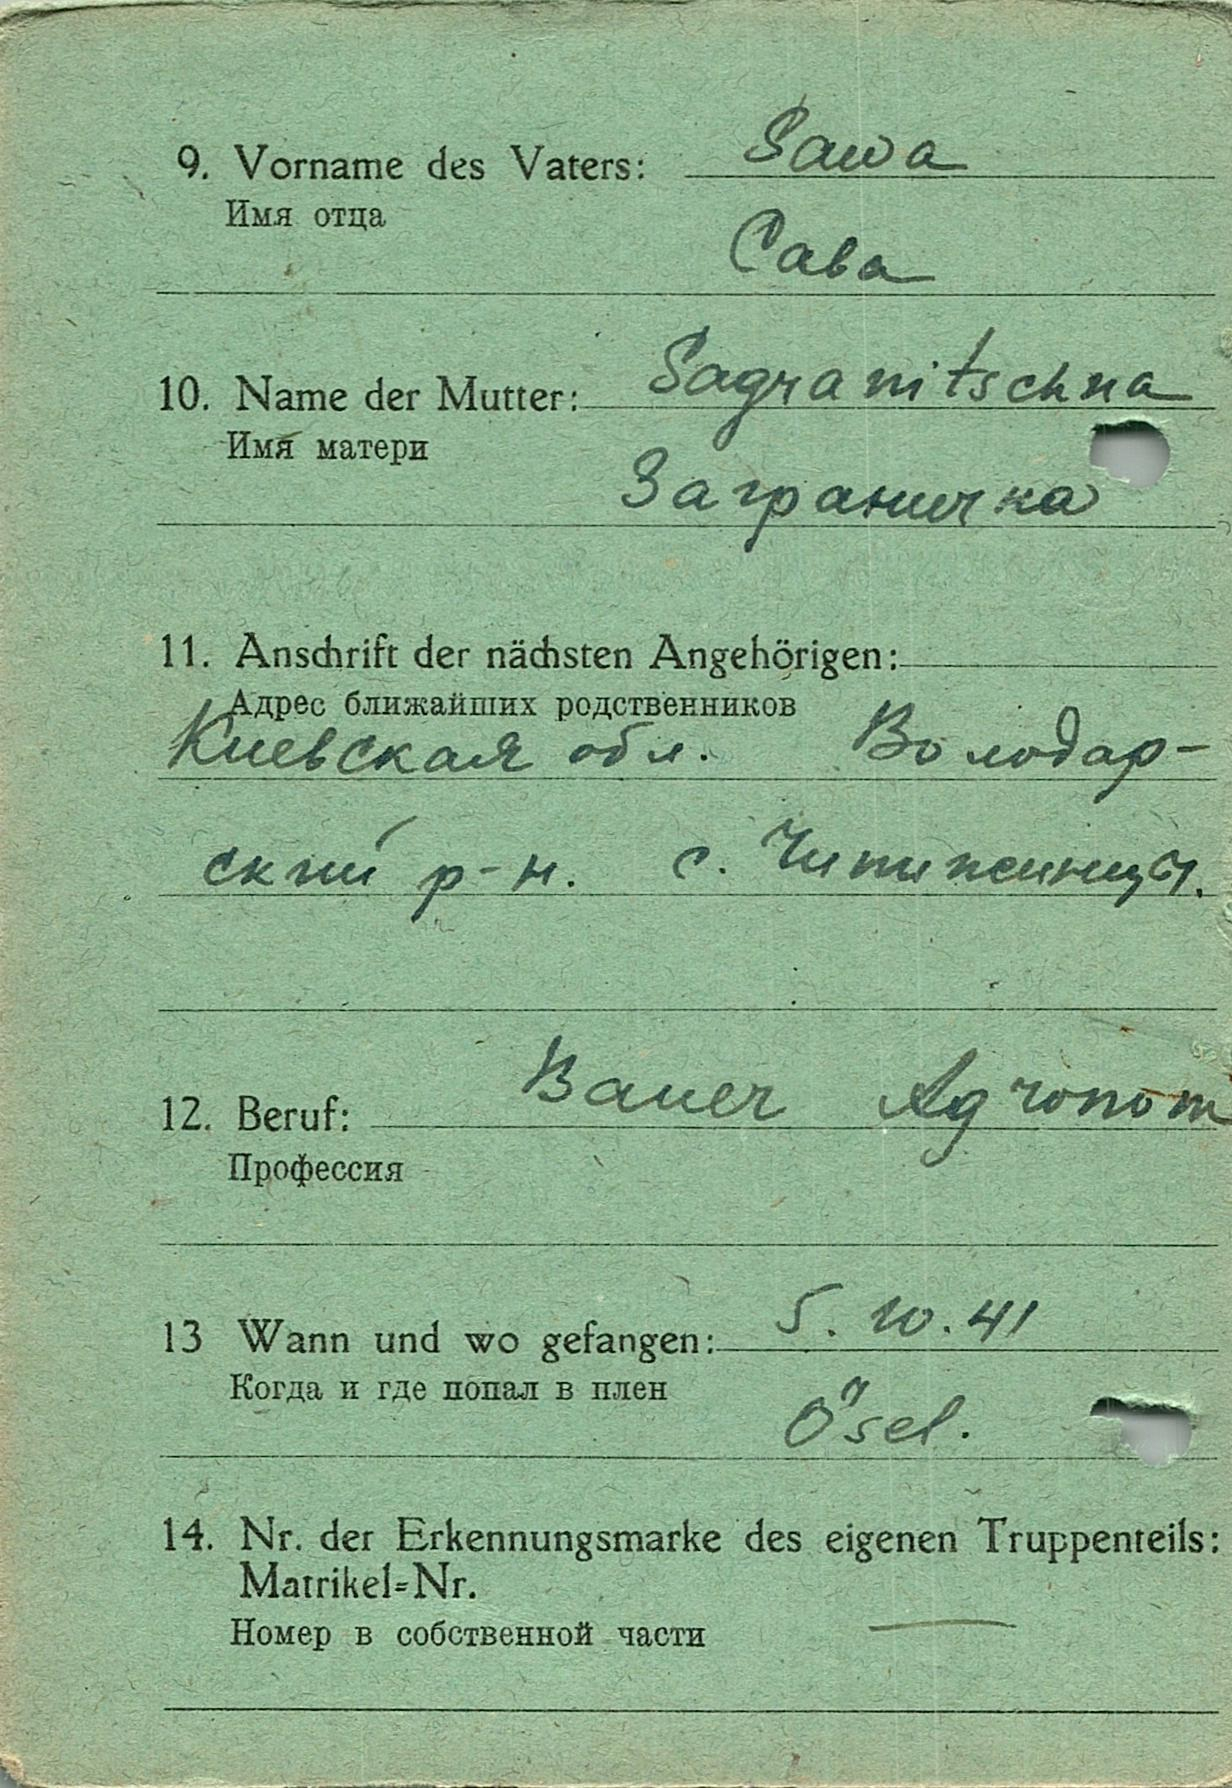 9. Vorname des Vaters: Sawa
Имя отца
Сава
10. Name der Mutter: Sagranitschna
Имя матери
Заграничка
11. Anschrift der nächsten Angehörigen:
Адрес ближайших родственников
Киевская обл. Володар-
ский р-н. с.
12. Beruf: Bauer Agronom
Профессия
13 Wann und wo gefangen: 5. 10. 41
Когда и где попал в плен
Ösel.
14. Nr. der Erkennungsmarke des eigenen Truppenteils:
Matrikel=Nr.
Номер в собственной части —